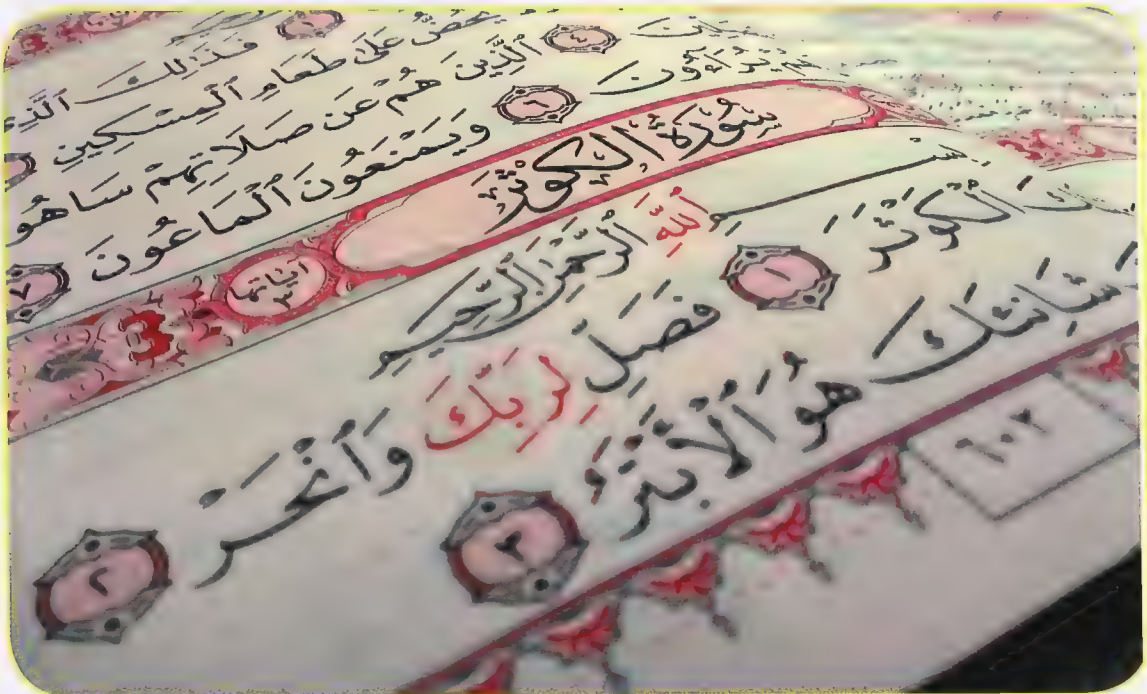 فَذَٰلِكَ
يَحُضُّ عَلَىٰ طَعَامِ ٱلْمِسْكِينِ
٤ ٱلَّذِينَ هُمْ عَن صَلَاتِهِمْ سَاهُو
يُرَآءُونَ ٦ وَيَمْنَعُونَ ٱلْمَاعُونَ ٧
سُورَةُ الكَوثَر
آياتها ٣
ٱللَّهِ ٱلرَّحْمَٰنِ ٱلرَّحِيمِ
ٱلْكَوْثَرَ ١ فَصَلِّ لِرَبِّكَ وَٱنْحَرْ ٢
شَانِئَكَ هُوَ ٱلْأَبْتَرُ ٣
٦٠٢